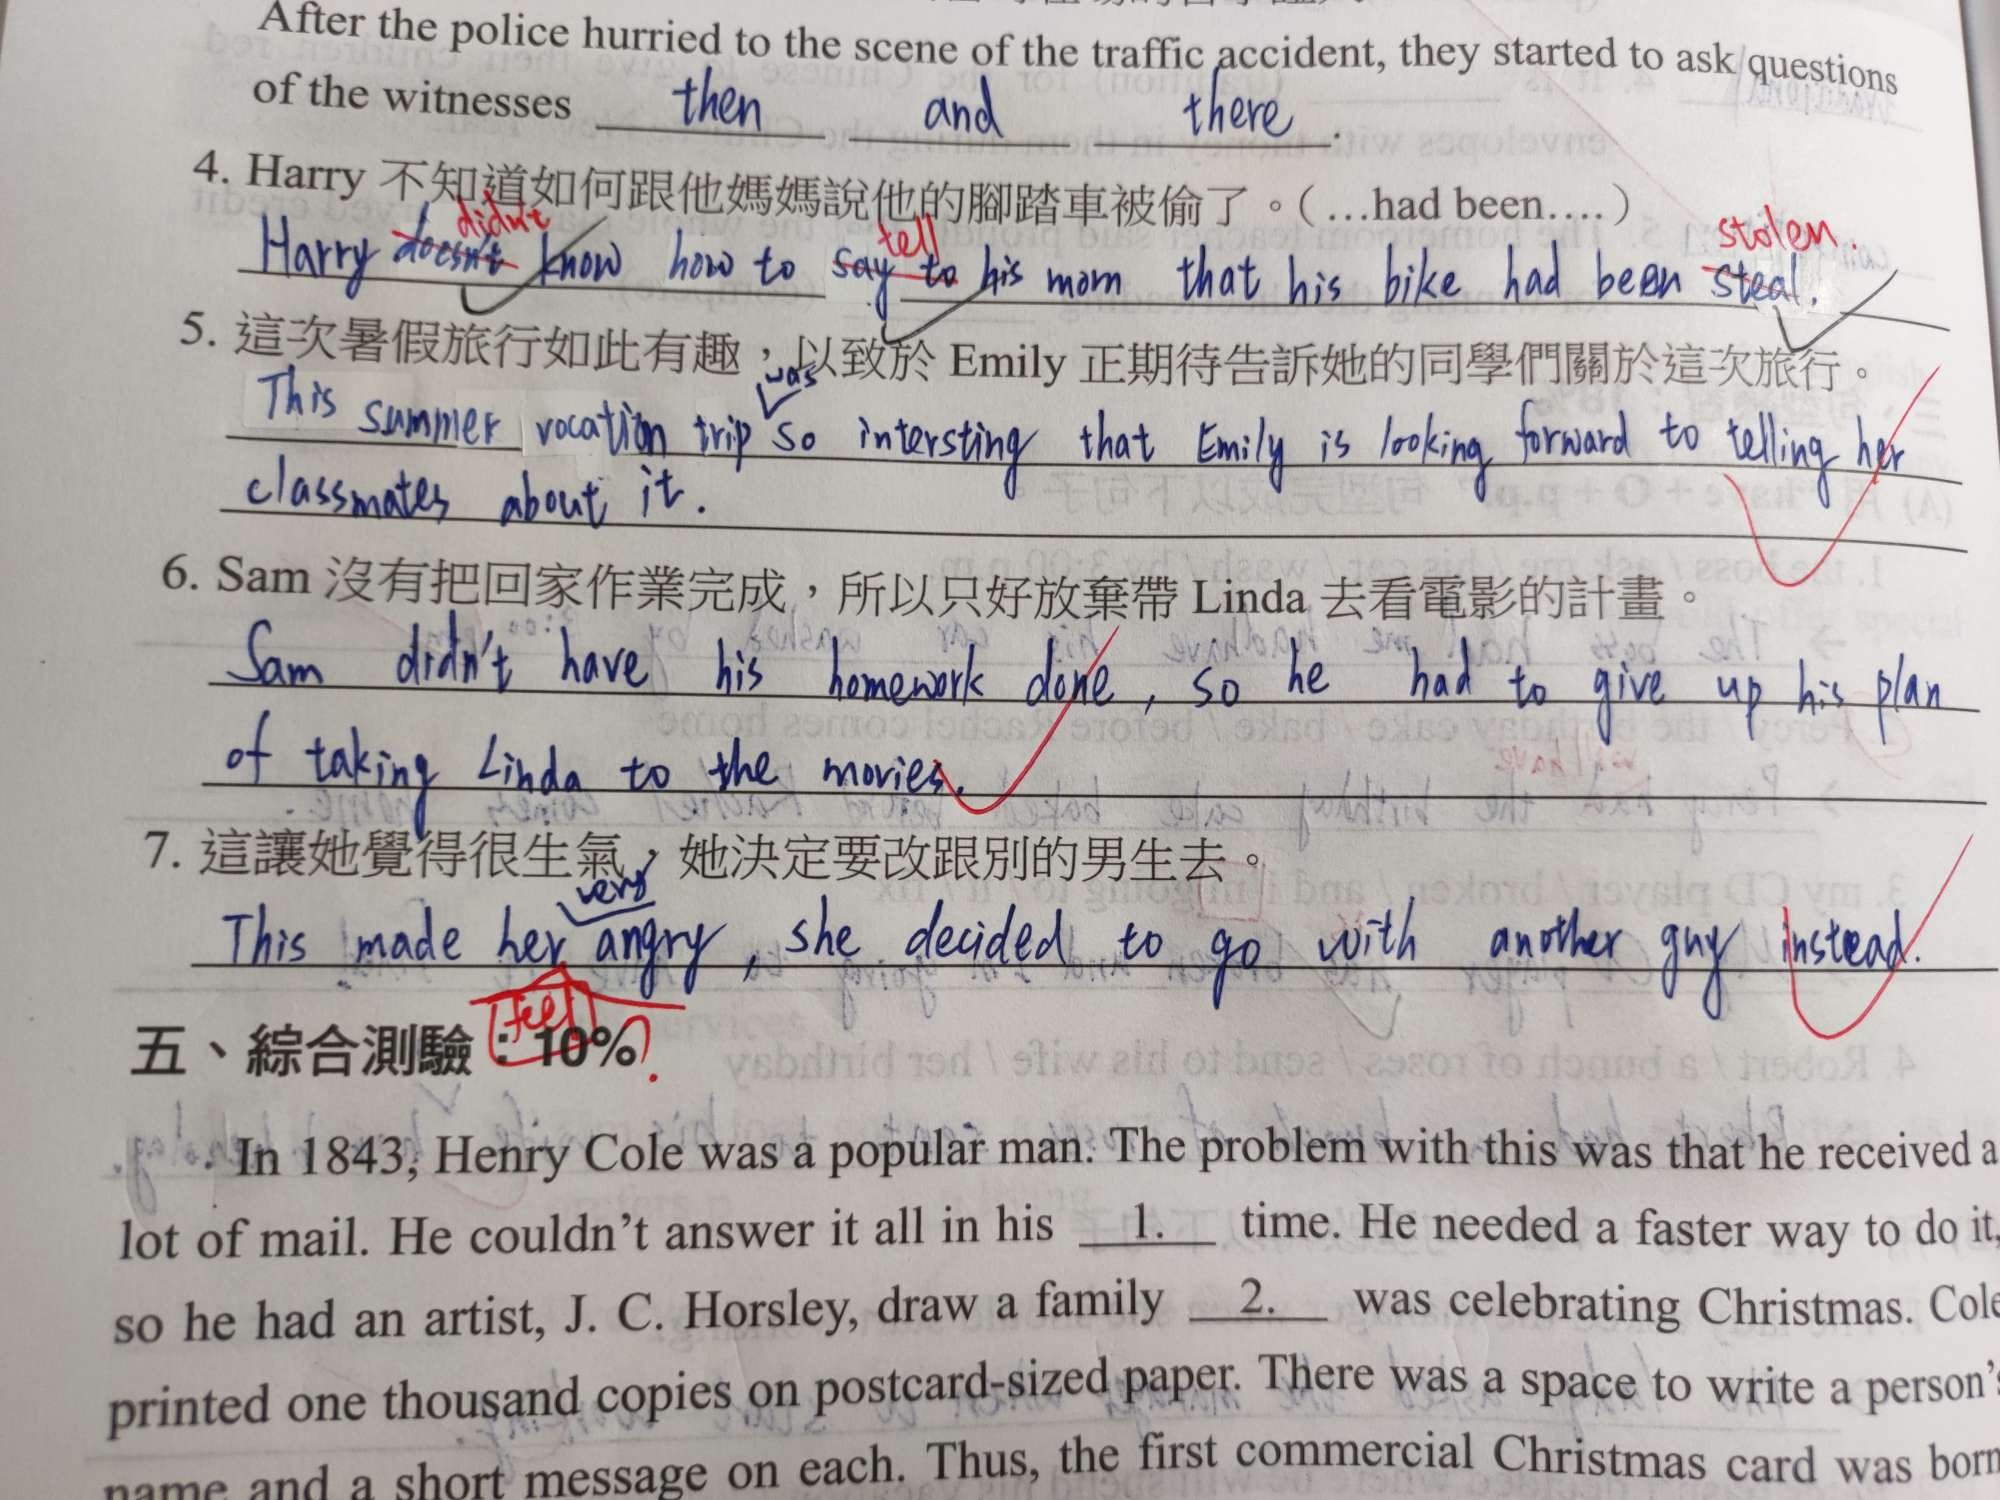 After the police hurried to the scene of the traffic accident, they started to ask questions
of the witnesses then and there .
4. Harry 不知道如何跟他媽媽說他的腳踏車被偷了。(…had been….)
didn't tell stolen.
Harry doesn't know how to say to his mom that his bike had been steal.
5. 這次暑假旅行如此有趣，以致於 Emily 正期待告訴她的同學們關於這次旅行。
was
This summer vocation trip so intersting that Emily is looking forward to telling her
classmates about it.
6. Sam 沒有把回家作業完成，所以只好放棄帶 Linda 去看電影的計畫。
Sam didn't have his homework done, so he had to give up his plan
of taking Linda to the movies.
7. 這讓她覺得很生氣，她決定要改跟別的男生去。
very
This made her angry, she decided to go with another guy instead.
feel ?
五、綜合測驗：10%
In 1843, Henry Cole was a popular man. The problem with this was that he received a
lot of mail. He couldn't answer it all in his 1. time. He needed a faster way to do it,
so he had an artist, J. C. Horsley, draw a family 2. was celebrating Christmas. Cole
printed one thousand copies on postcard-sized paper. There was a space to write a person's
name and a short message on each. Thus, the first commercial Christmas card was born